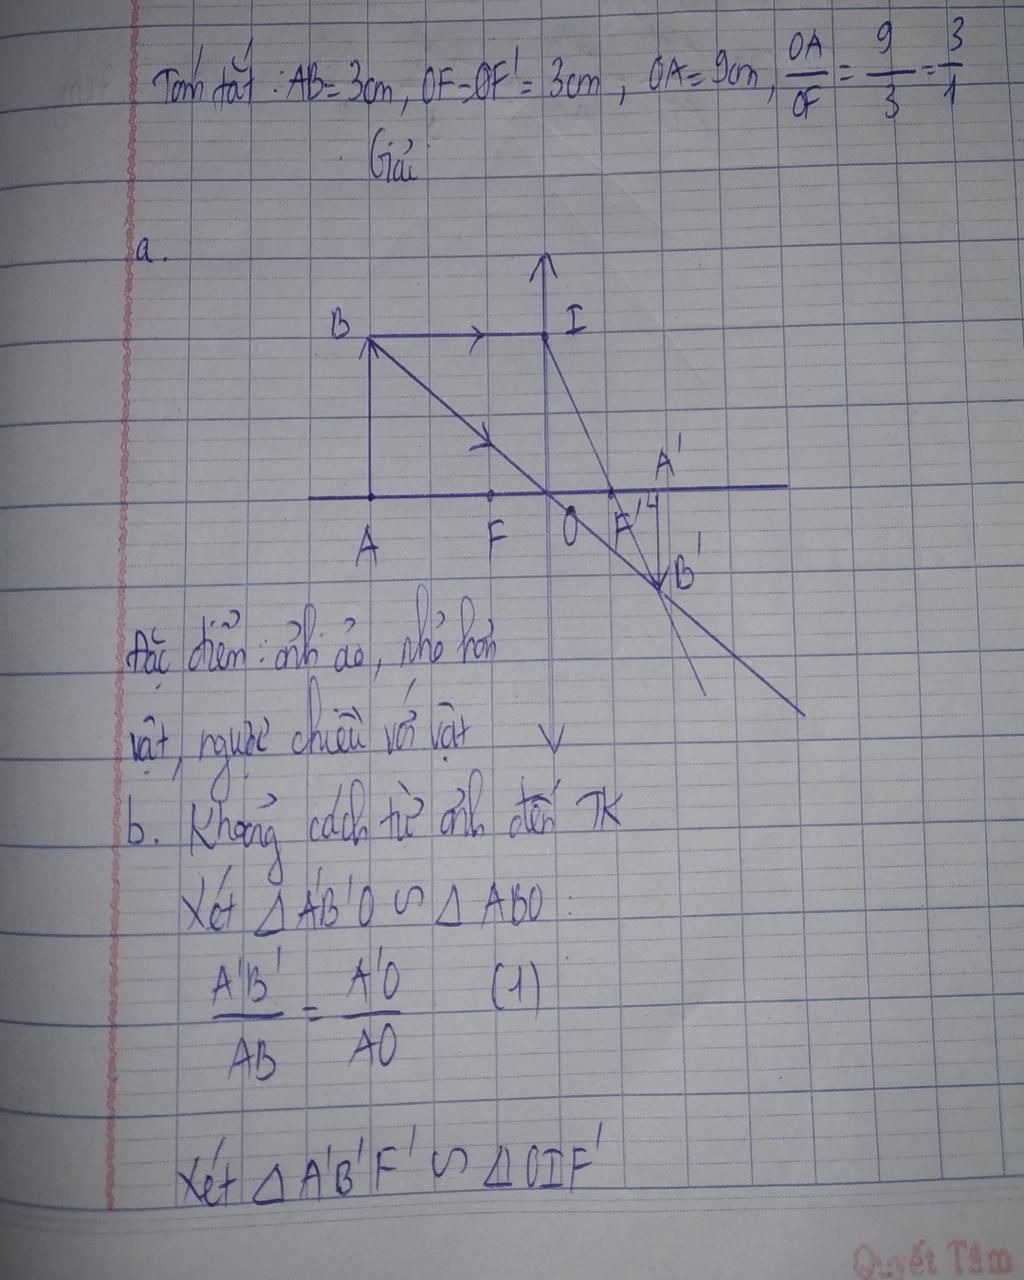 Tóm tắt : AB = 3cm, OF = OF' = 3cm, OA = 9cm, OA/OF = 9/3 = 3/1
Giải
a.
B I
A'
A F O F'
B'
Đặc điểm : ảnh ảo, nhỏ hơn
vật, ngược chiều với vật
b. Khoảng cách từ ảnh đến TK
Xét Δ A'B'O ∽ Δ ABO :
A'B'/AB = A'O/AO (1)
Xét Δ A'B'F' ∽ Δ OIF'
Quyết Tâm